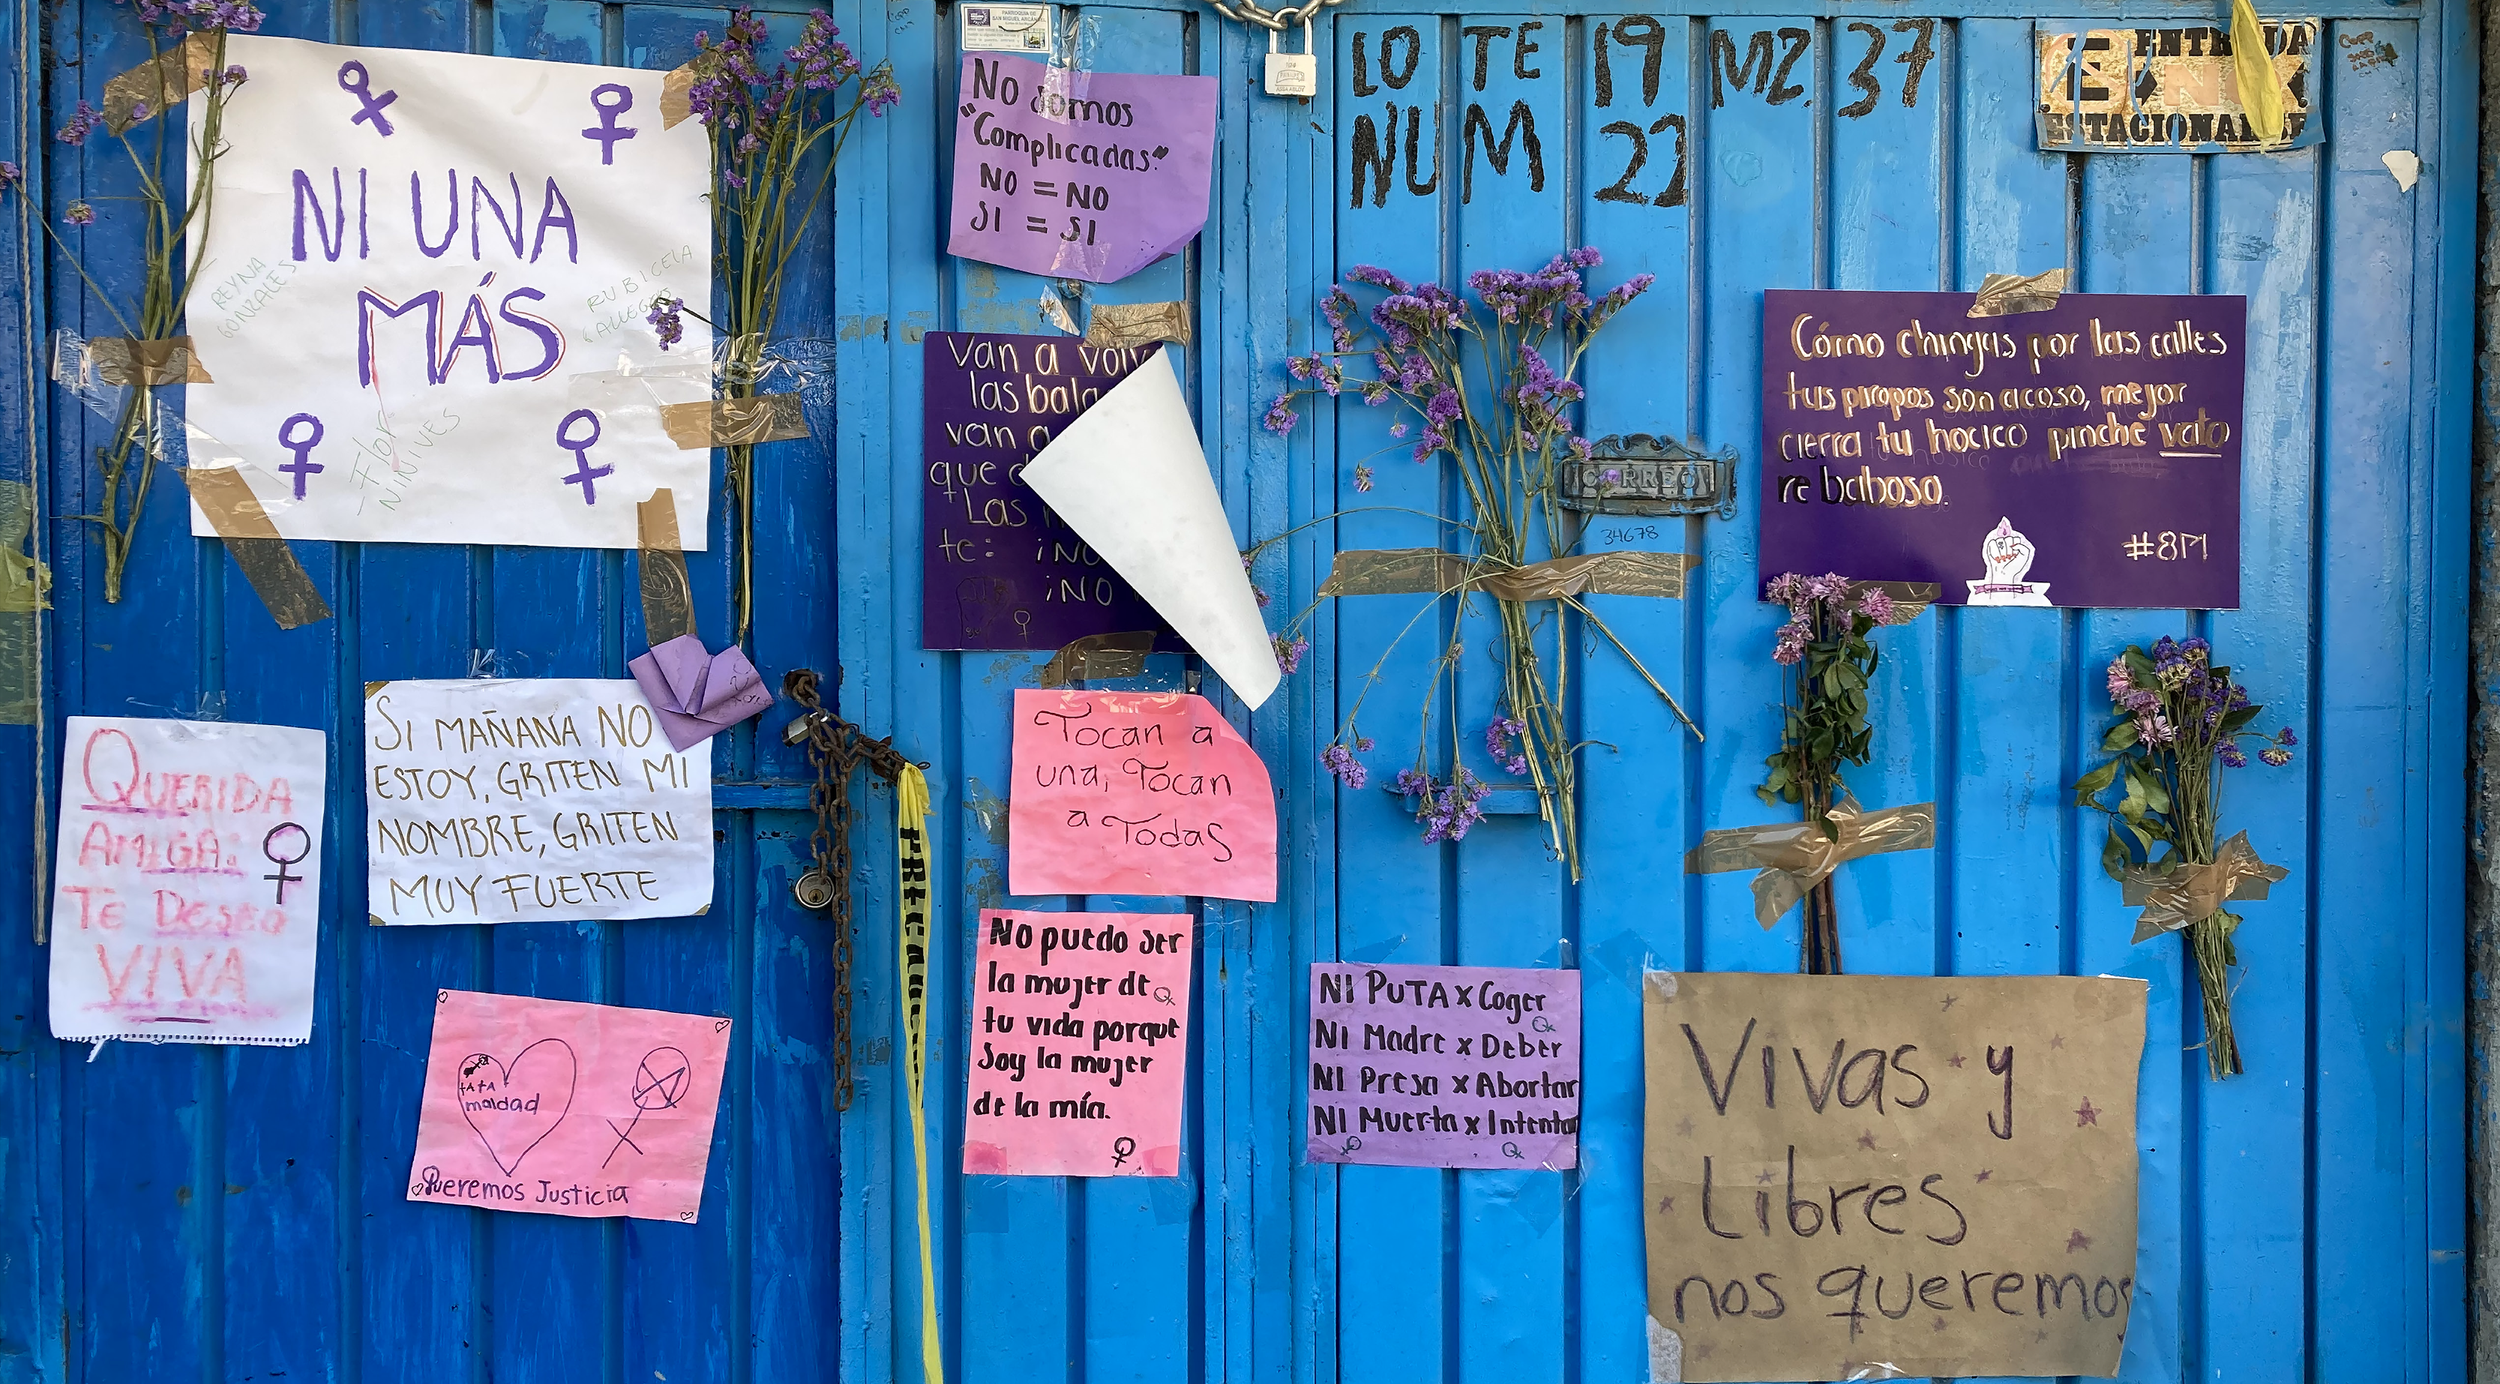 NI UNA
MÁS
REYNA
GONZALES
RUBICELA
GALLEGOS
Flor
NINIVES
PARROQUIA DE
SAN MIGUEL ARCÁNGEL
No somos
"Complicadas"
NO = NO
SI = SI
LOTE 19 MZ. 37
NUM 22
ENTRADA
ESTACIONARSE
Van a
las
van a
que
Las
te: ¡NO
¡NO
CORREO
34678
Cómo chingas por las calles
tus piropos son acoso, mejor
cierra tu hocico pinche vato
re baboso.
#8M
QUERIDA
AMIGA:
TE DESEO
VIVA
SI MAÑANA NO
ESTOY, GRITEN MI
NOMBRE, GRITEN
MUY FUERTE
Tocan a
una, Tocan
a Todas
tATA
maldad
Queremos Justicia
No puedo ser
la mujer de
tu vida porque
Soy la mujer
de la mía.
NI PUTA x Coger
NI Madre x Deber
NI Presa x Abortar
NI Muerta x Intentar
Vivas y
Libres
nos queremos